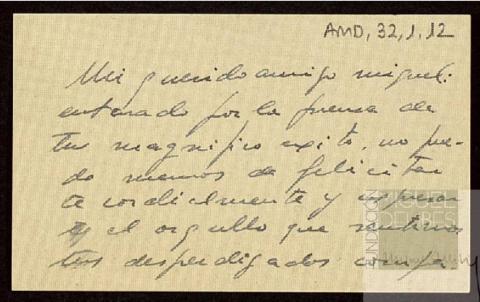 AMD, 32, 1, 12
Mi querido amigo Miguel:
enterado por la prensa de
tu magnífico exito, no pue-
do menos de felicitar
te cordialmente y expresar
te el orgullo que sentimos
tus desperdigados compa-
FUNDACIÓN
MIGUEL
DELIBES